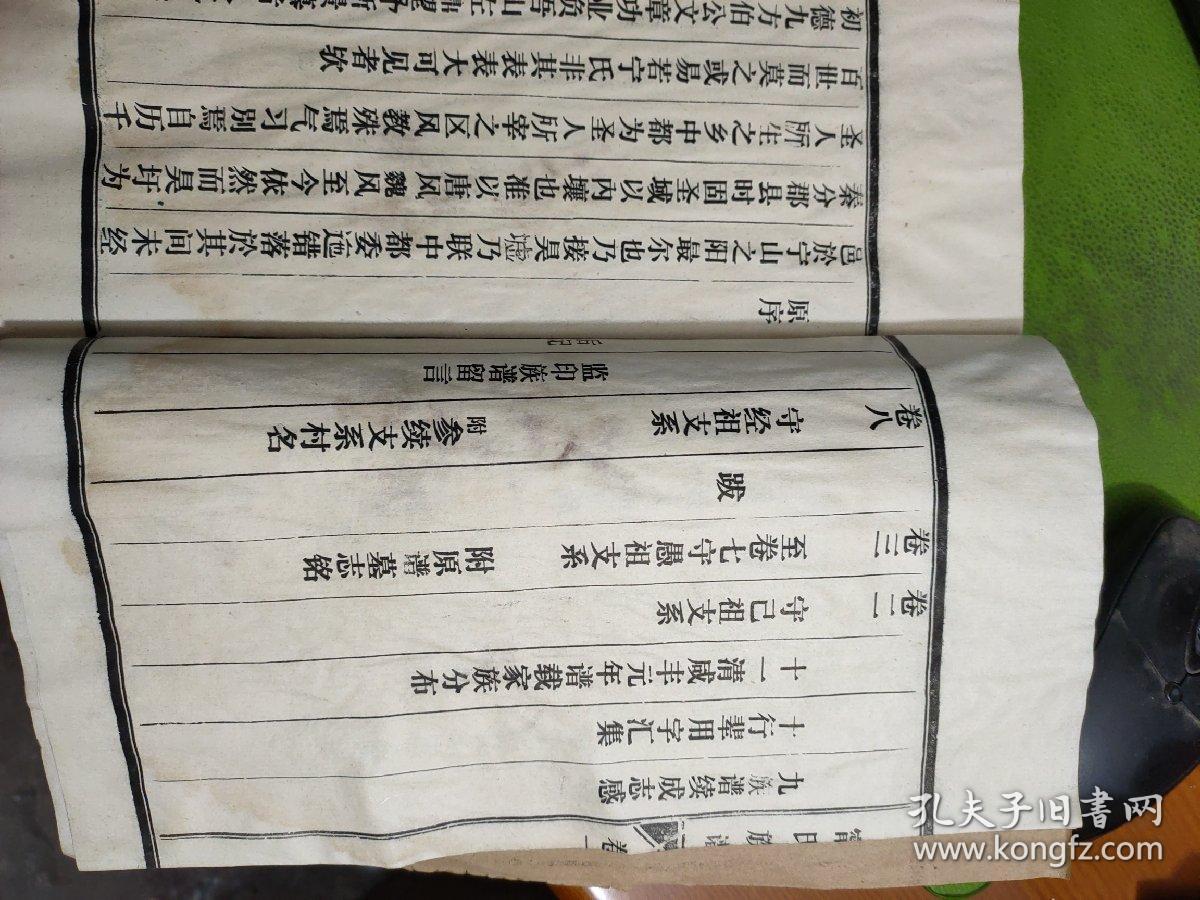 族谱 卷一
九 族谱续成志感
十 行辈用字汇集
十一 清咸丰元年谱载家族分布
卷二 守己祖支系
卷三 至卷七守愚祖支系 附原谱墓志铭
跋
卷八 守经祖支系 附参续支系村名
监印族谱留言
后记
原序
邑於宁山之阳最尔也乃接吴墟乃联中都委迤错落於其间未经
秦分郡县时固圣域以内壤也准以唐风魏风至今依然而吴圩为
圣人所生之乡中都为圣人所宰之区风教殊焉气习别焉自历千
百世而莫之或易若宁氏非其表表大可见者欤
初德九方伯公文章功业负吾山左鼎望予所景慕
孔夫子旧书网
www.kongfz.com